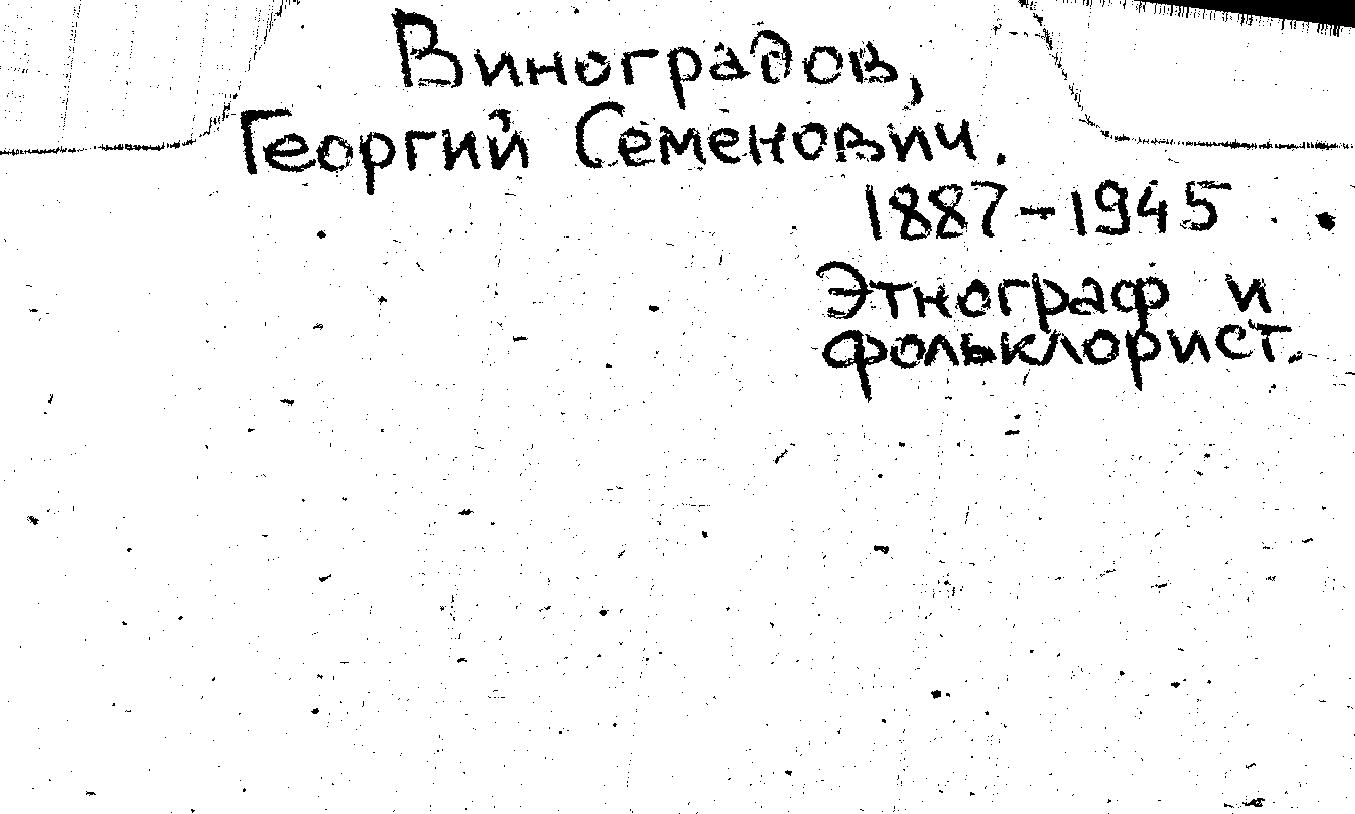 Виноградов,
Георгий Семенович.
1887-1945
Этнограф и
фольклорист.